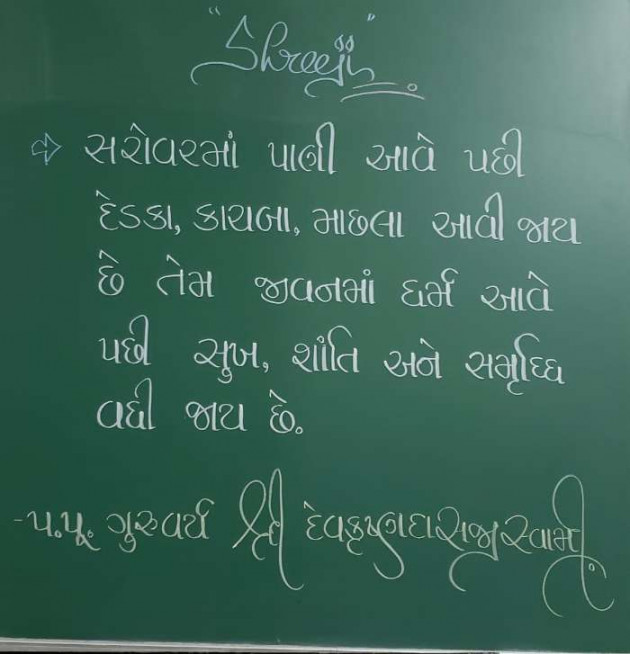 "Shreeji"
⇒ સરોવરમાં પાણી આવે પછી
દેડકા, કાચબા, માછલા આવી જાય
છે તેમ જીવનમાં ધર્મ આવે
પછી સુખ, શાંતિ અને સમૃધ્ધિ
વધી જાય છે.
-પ.પૂ. ગુરુવર્ય શ્રી દેવકૃષ્ણદાસજીસ્વામી.